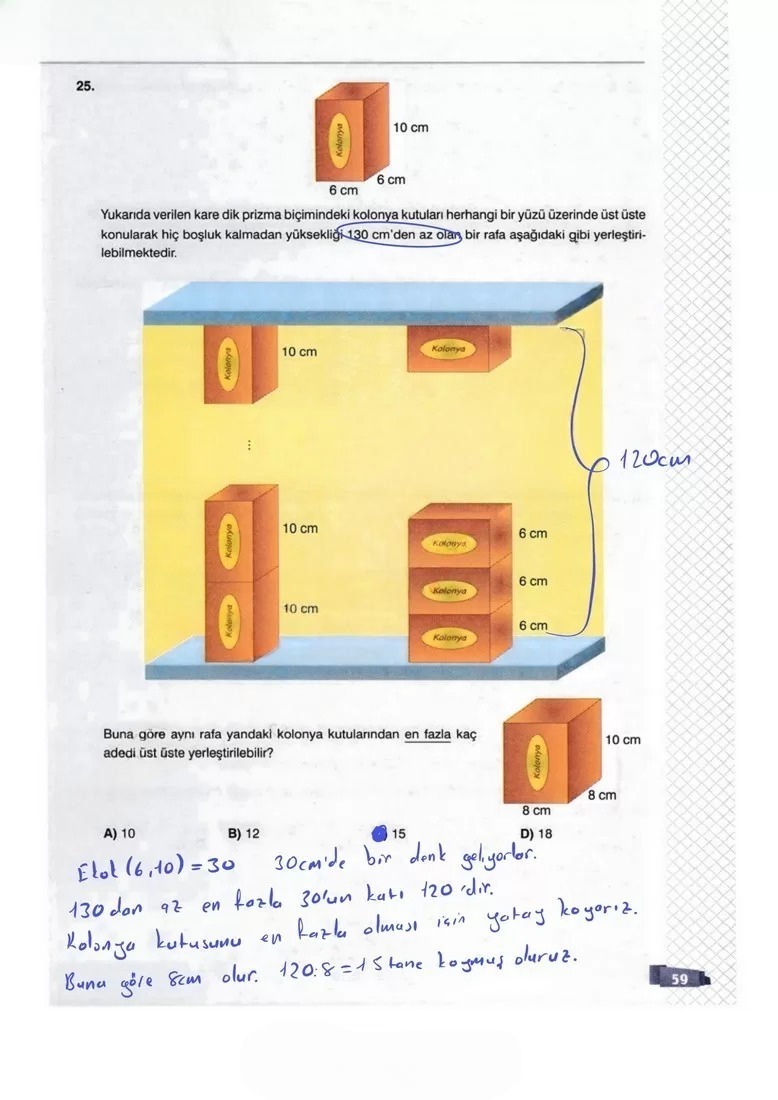 25.
Kolonya
10 cm
6 cm
6 cm
Yukarıda verilen kare dik prizma biçimindeki kolonya kutuları herhangi bir yüzü üzerinde üst üste
konularak hiç boşluk kalmadan yüksekliği 130 cm'den az olan bir rafa aşağıdaki gibi yerleştiri-
lebilmektedir.
Kolonya
10 cm
Kolonya
...
120cm
Kolonya
10 cm
Kolonya
6 cm
Kolonya
6 cm
Kolonya
10 cm
Kolonya
6 cm
Buna göre aynı rafa yandaki kolonya kutularından en fazla kaç
adedi üst üste yerleştirilebilir?
Kolonya
10 cm
8 cm
8 cm
A) 10 B) 12 15 D) 18
Ekok (6,10) = 30 30cm'de bir denk geliyorlar.
130 dan az en fazla 30'un katı 120 'dir.
Kolonya kutusunu en fazla olması için yatay koyarız.
Buna göre 8cm olur. 120:8=15 tane koymuş oluruz.
59